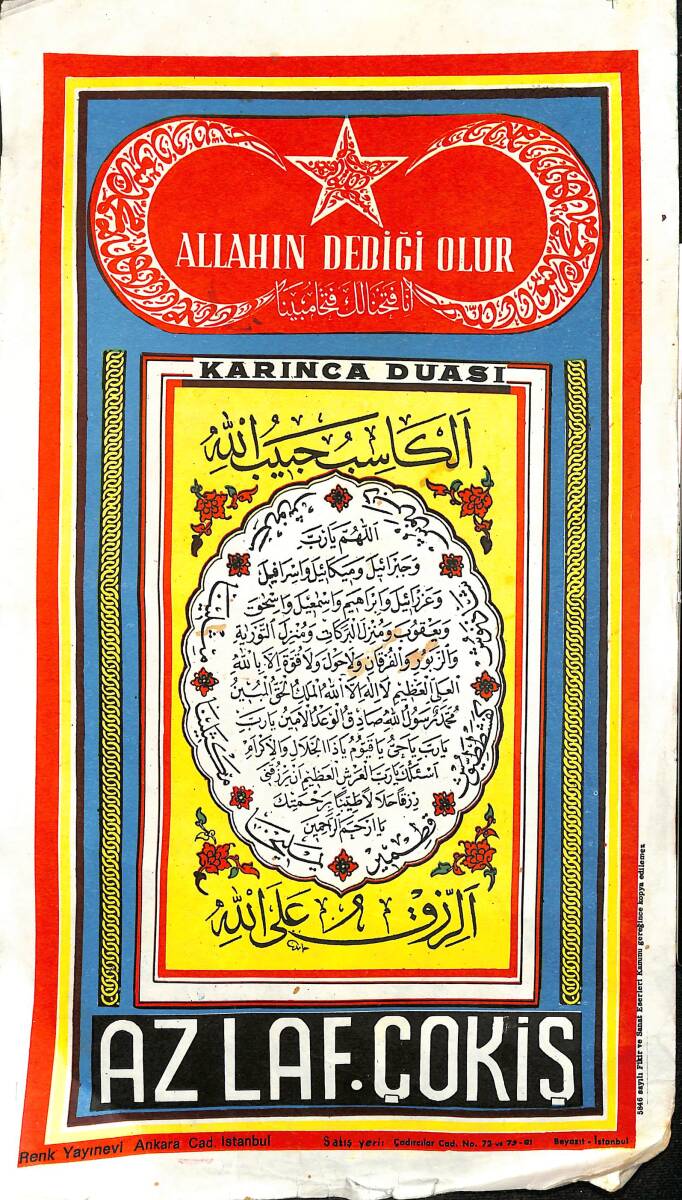 ALLAHIN DEDİĞİ OLUR
انا فتحنا لك فتحا مبينا
KARINCA DUASI
الكاسب حبيب الله
اللهم يا رب
وجبرائيل وميكائيل واسرافيل
وعزرائيل وابراهيم واسمعيل واسحق
ويعقوب ومنزل البركات ومنزل التورية
والزبور والفرقان ولا حول ولا قوة الا بالله
العلى العظيم لا اله الا الله الملك الحق المبين
محمد رسول الله صادق الوعد الامين يا رب
يا رب يا حى يا قيوم يا ذا الجلال والاكرام
اسئلك يا رب العرش العظيم ان يرزقنى
رزقا حلالا طيبا برحمتك
يا ارحم الراحمين
يمليخا
مكثلينا
مثلينا
مرنوش
دبرنوش
شاذنوش
كفشططيوش
قطمير
الرزق على الله
AZ LAF. ÇOK İŞ
5846 sayılı Fikir ve Sanat Eserleri Kanunu gereğince kopya edilemez
Renk Yayınevi Ankara Cad. İstanbul
Satış yeri: Çadırcılar Cad. No. 72 ve 79-81 Beyazıt - İstanbul